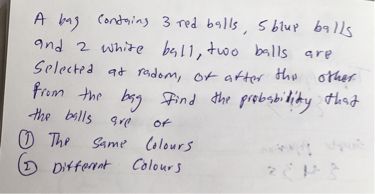 A bag contains 3 red balls, 5 blue balls
and 2 white ball, two balls are
Selected at radom, of after the other
from the bag find the probability that
the balls are of
① The same Colours
② Different Colours